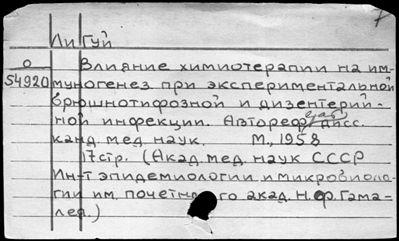 Ли Гуй
О
54920
Влияние химиотерапии на им-
муногенез при экспериментальной
брюшнотифозной и дизентерий-
ной инфекции. Автореф дисс.
канд. мед. наук. М., 1958
17 стр. (Акад. мед. наук СССР
Ин-т эпидемиологии и микробиоло-
гии им. почетн го акад. Н.Ф. Гама-
леи.)